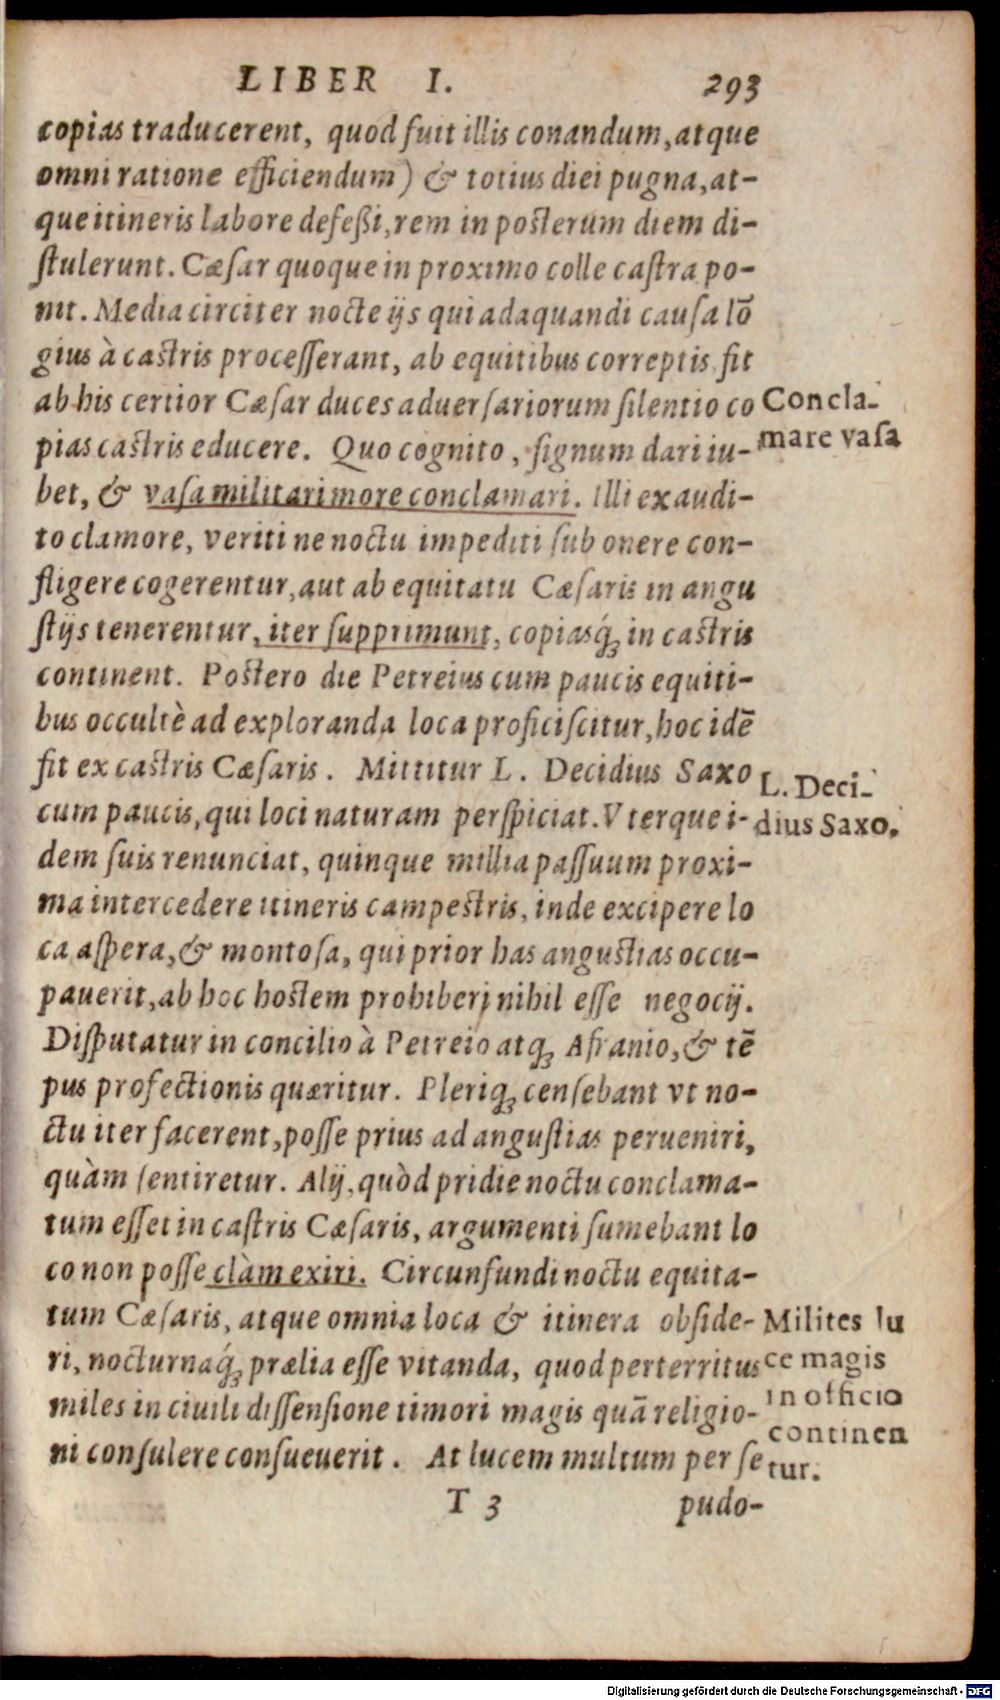 LIBER I. 293
copias traducerent, quod fuit illis conandum, atque
omni ratione efficiendum) & totius diei pugna, at-
que itineris labore defeßi, rem in posterum diem di-
ſtulerunt. Cæſar quoque in proximo colle caſtra po-
nit. Media circiter nocte ijs qui adaquandi cauſa lō
gius à caſtris proceſſerant, ab equitibus correptis fit
ab his certior Cæſar duces aduerſariorum ſilentio co
pias caſtris educere. Quo cognito, ſignum dari iu-
bet, & vaſa militari more conclamari. Illi exaudi-
to clamore, veriti ne noctu impediti ſub onere con-
fligere cogerentur, aut ab equitatu Cæſaris in angu
ſtijs tenerentur, iter ſupprimunt, copiasq́ꝫ in caſtris
continent. Poſtero die Petreius cum paucis equiti-
bus occultè ad exploranda loca proficiſcitur, hoc idē
fit ex caſtris Cæſaris. Mittitur L. Decidius Saxo
cum paucis, qui loci naturam perſpiciat. Vterque i-
dem ſuis renunciat, quinque millia paſſuum proxi-
ma intercedere itineris campeſtris, inde excipere lo
ca aſpera, & montoſa, qui prior has anguſtias occu-
pauerit, ab hoc hoſtem prohiberi nihil eſſe negocij.
Diſputatur in concilio à Petreio atqꝫ Afranio, & tē
pus profectionis quæritur. Pleriqꝫ cenſebant vt no-
ctu iter facerent, poſſe prius ad anguſtias perueniri,
quàm ſentiretur. Alij, quòd pridie noctu conclama-
tum eſſet in caſtris Cæſaris, argumenti ſumebant lo
co non poſſe clàm exiri. Circunfundi noctu equita-
tum Cæſaris, atque omnia loca & itinera obſide-
ri, nocturnaq́ꝫ prælia eſſe vitanda, quod perterritus
miles in ciuili diſſenſione timori magis quā religio-
ni conſulere conſueuerit. At lucem multum per ſe
T 3 pudo-
Concla-
mare vaſa
L. Deci-
dius Saxo.
Milites lu
ce magis
in officio
continen
tur.
Digitalisierung gefördert durch die Deutsche Forschungsgemeinschaft - DFG